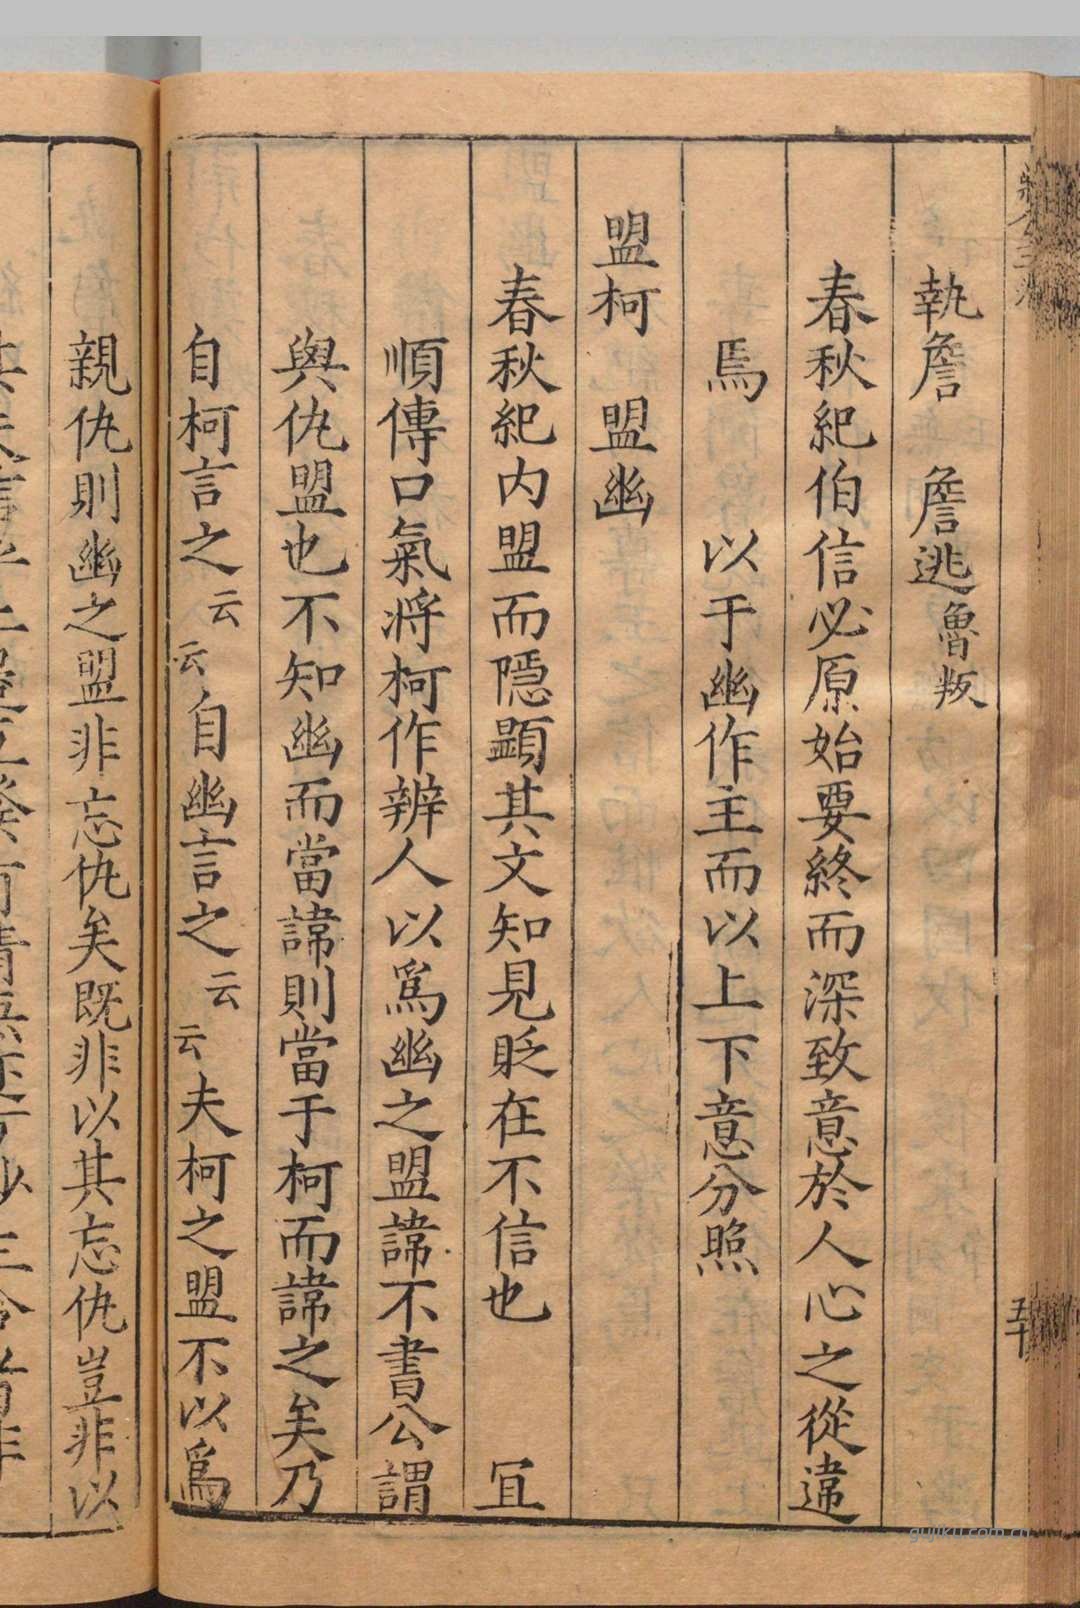 五十
執詹　詹逃魯叛
春秋紀伯信必原始要終而深致意於人心之從違
焉　以于幽作主而以上下意分照
盟柯　盟幽
春秋紀內盟而隱顯其文知見貶在不信也　冝
順傳口氣將柯作辨人以爲幽之盟諱不書公謂
與仇盟也不知幽而當諱則當于柯而諱之矣乃
自柯言之云云自幽言之云云夫柯之盟不以爲
親仇則幽之盟非忘仇矣既非以其忘仇豈非以
gujiku.com.cn